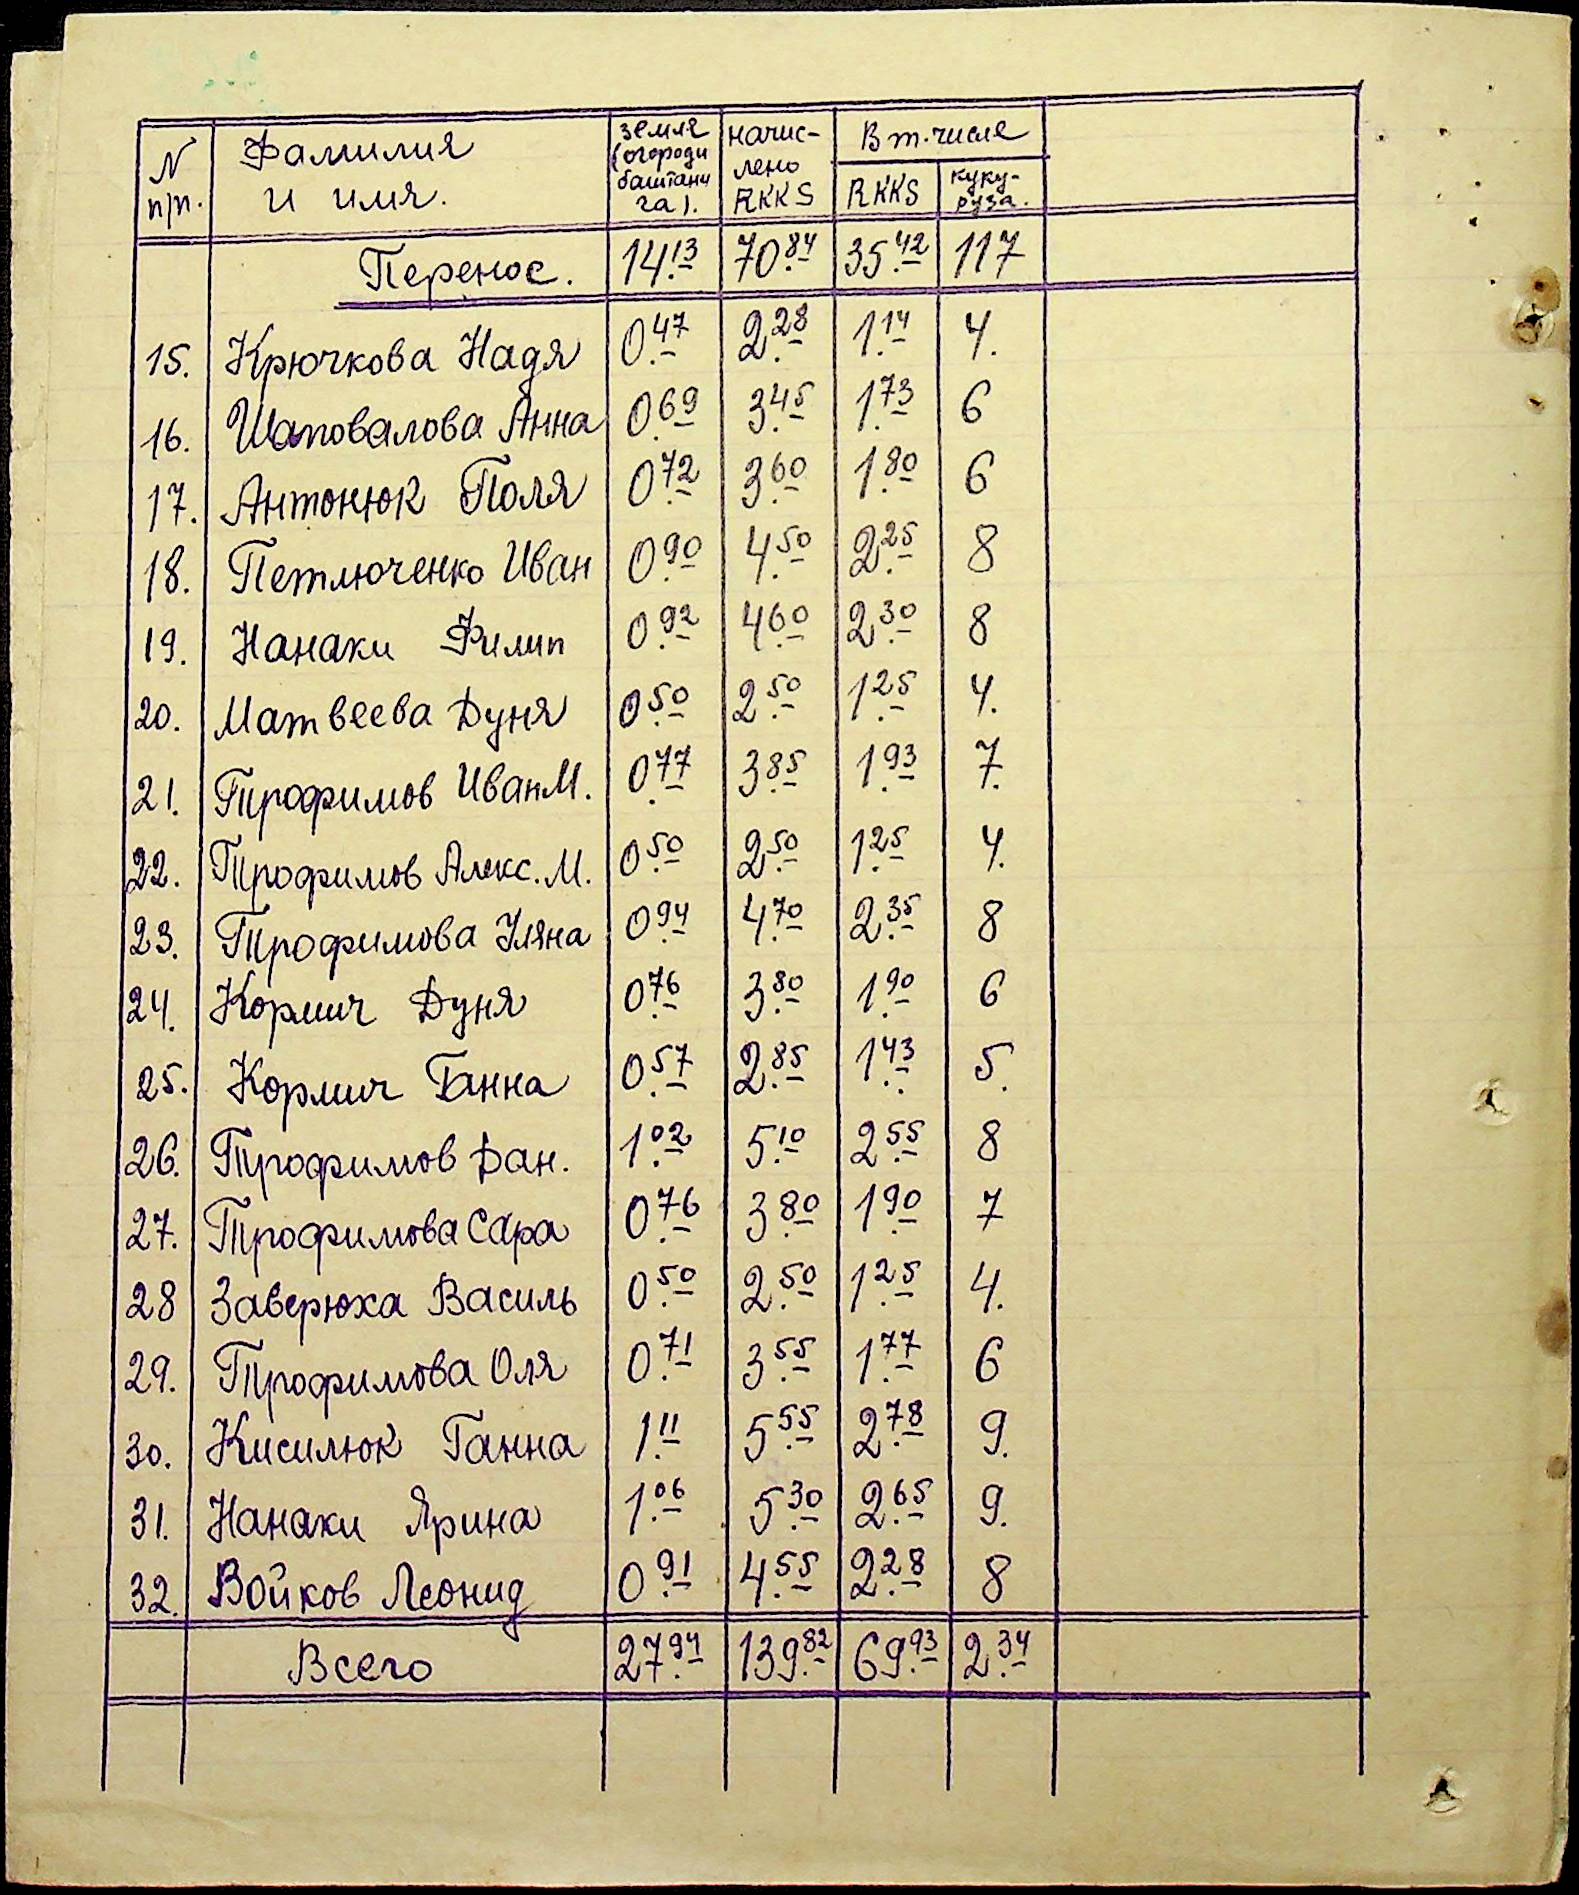 N п/п. Фамилия и имя. земля (огороди баштани га). начис-лено RKKS В т. числе RKKS куку-руза.
Перенос. 14.13 70.84 35.42 117
15. Крючкова Надя 0.47 2.28 1.14 4.
16. Шаповалова Анна 0.69 3.45 1.73 6
17. Антонюк Поля 0.72 3.60 1.80 6
18. Петлюченко Иван 0.90 4.50 2.25 8
19. Нанаки Филип 0.92 4.60 2.30 8
20. Матвеева Дуня 0.50 2.50 1.25 4.
21. Трофимов Иван М. 0.77 3.85 1.93 7.
22. Трофимов Алекс. М. 0.50 2.50 1.25 4.
23. Трофимова Уляна 0.94 4.70 2.35 8
24. Кормич Дуня 0.76 3.80 1.90 6
25. Кормич Ганна 0.57 2.85 1.43 5.
26. Трофимов Дан. 1.02 5.10 2.55 8
27. Трофимова Сара 0.76 3.80 1.90 7
28 Заверюха Василь 0.50 2.50 1.25 4.
29. Трофимова Оля 0.71 3.55 1.77 6
30. Кисилюк Ганна 1.11 5.55 2.78 9.
31. Нанаки Ярина 1.06 5.30 2.65 9.
32. Войков Леонид 0.91 4.55 2.28 8
Всего 27.94 139.82 69.93 2.34